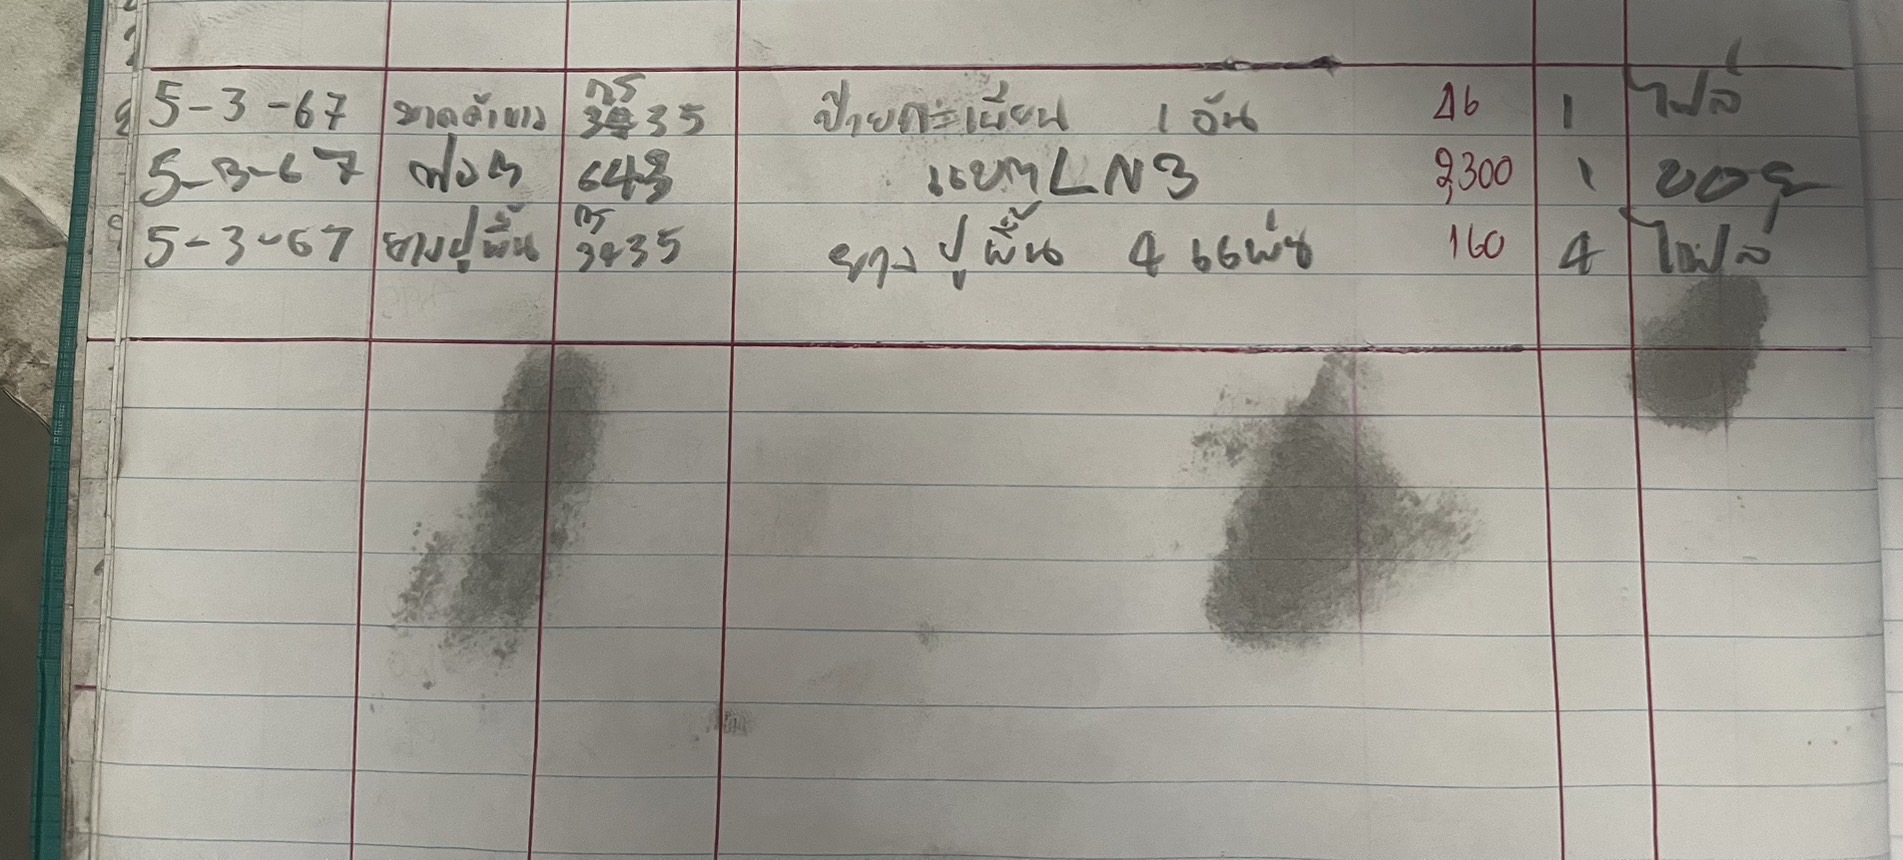 5-3-67 กร 3435 ป้ายทะเบียน 1 อัน 46 1 ไฟล์
5-3-67 ฟอด 643 แบตLN3 2,300 1
5-3-67 ยางปูพื้น กร 3435 ยางปูพื้น 4 แผ่น 160 4 ไฟล์